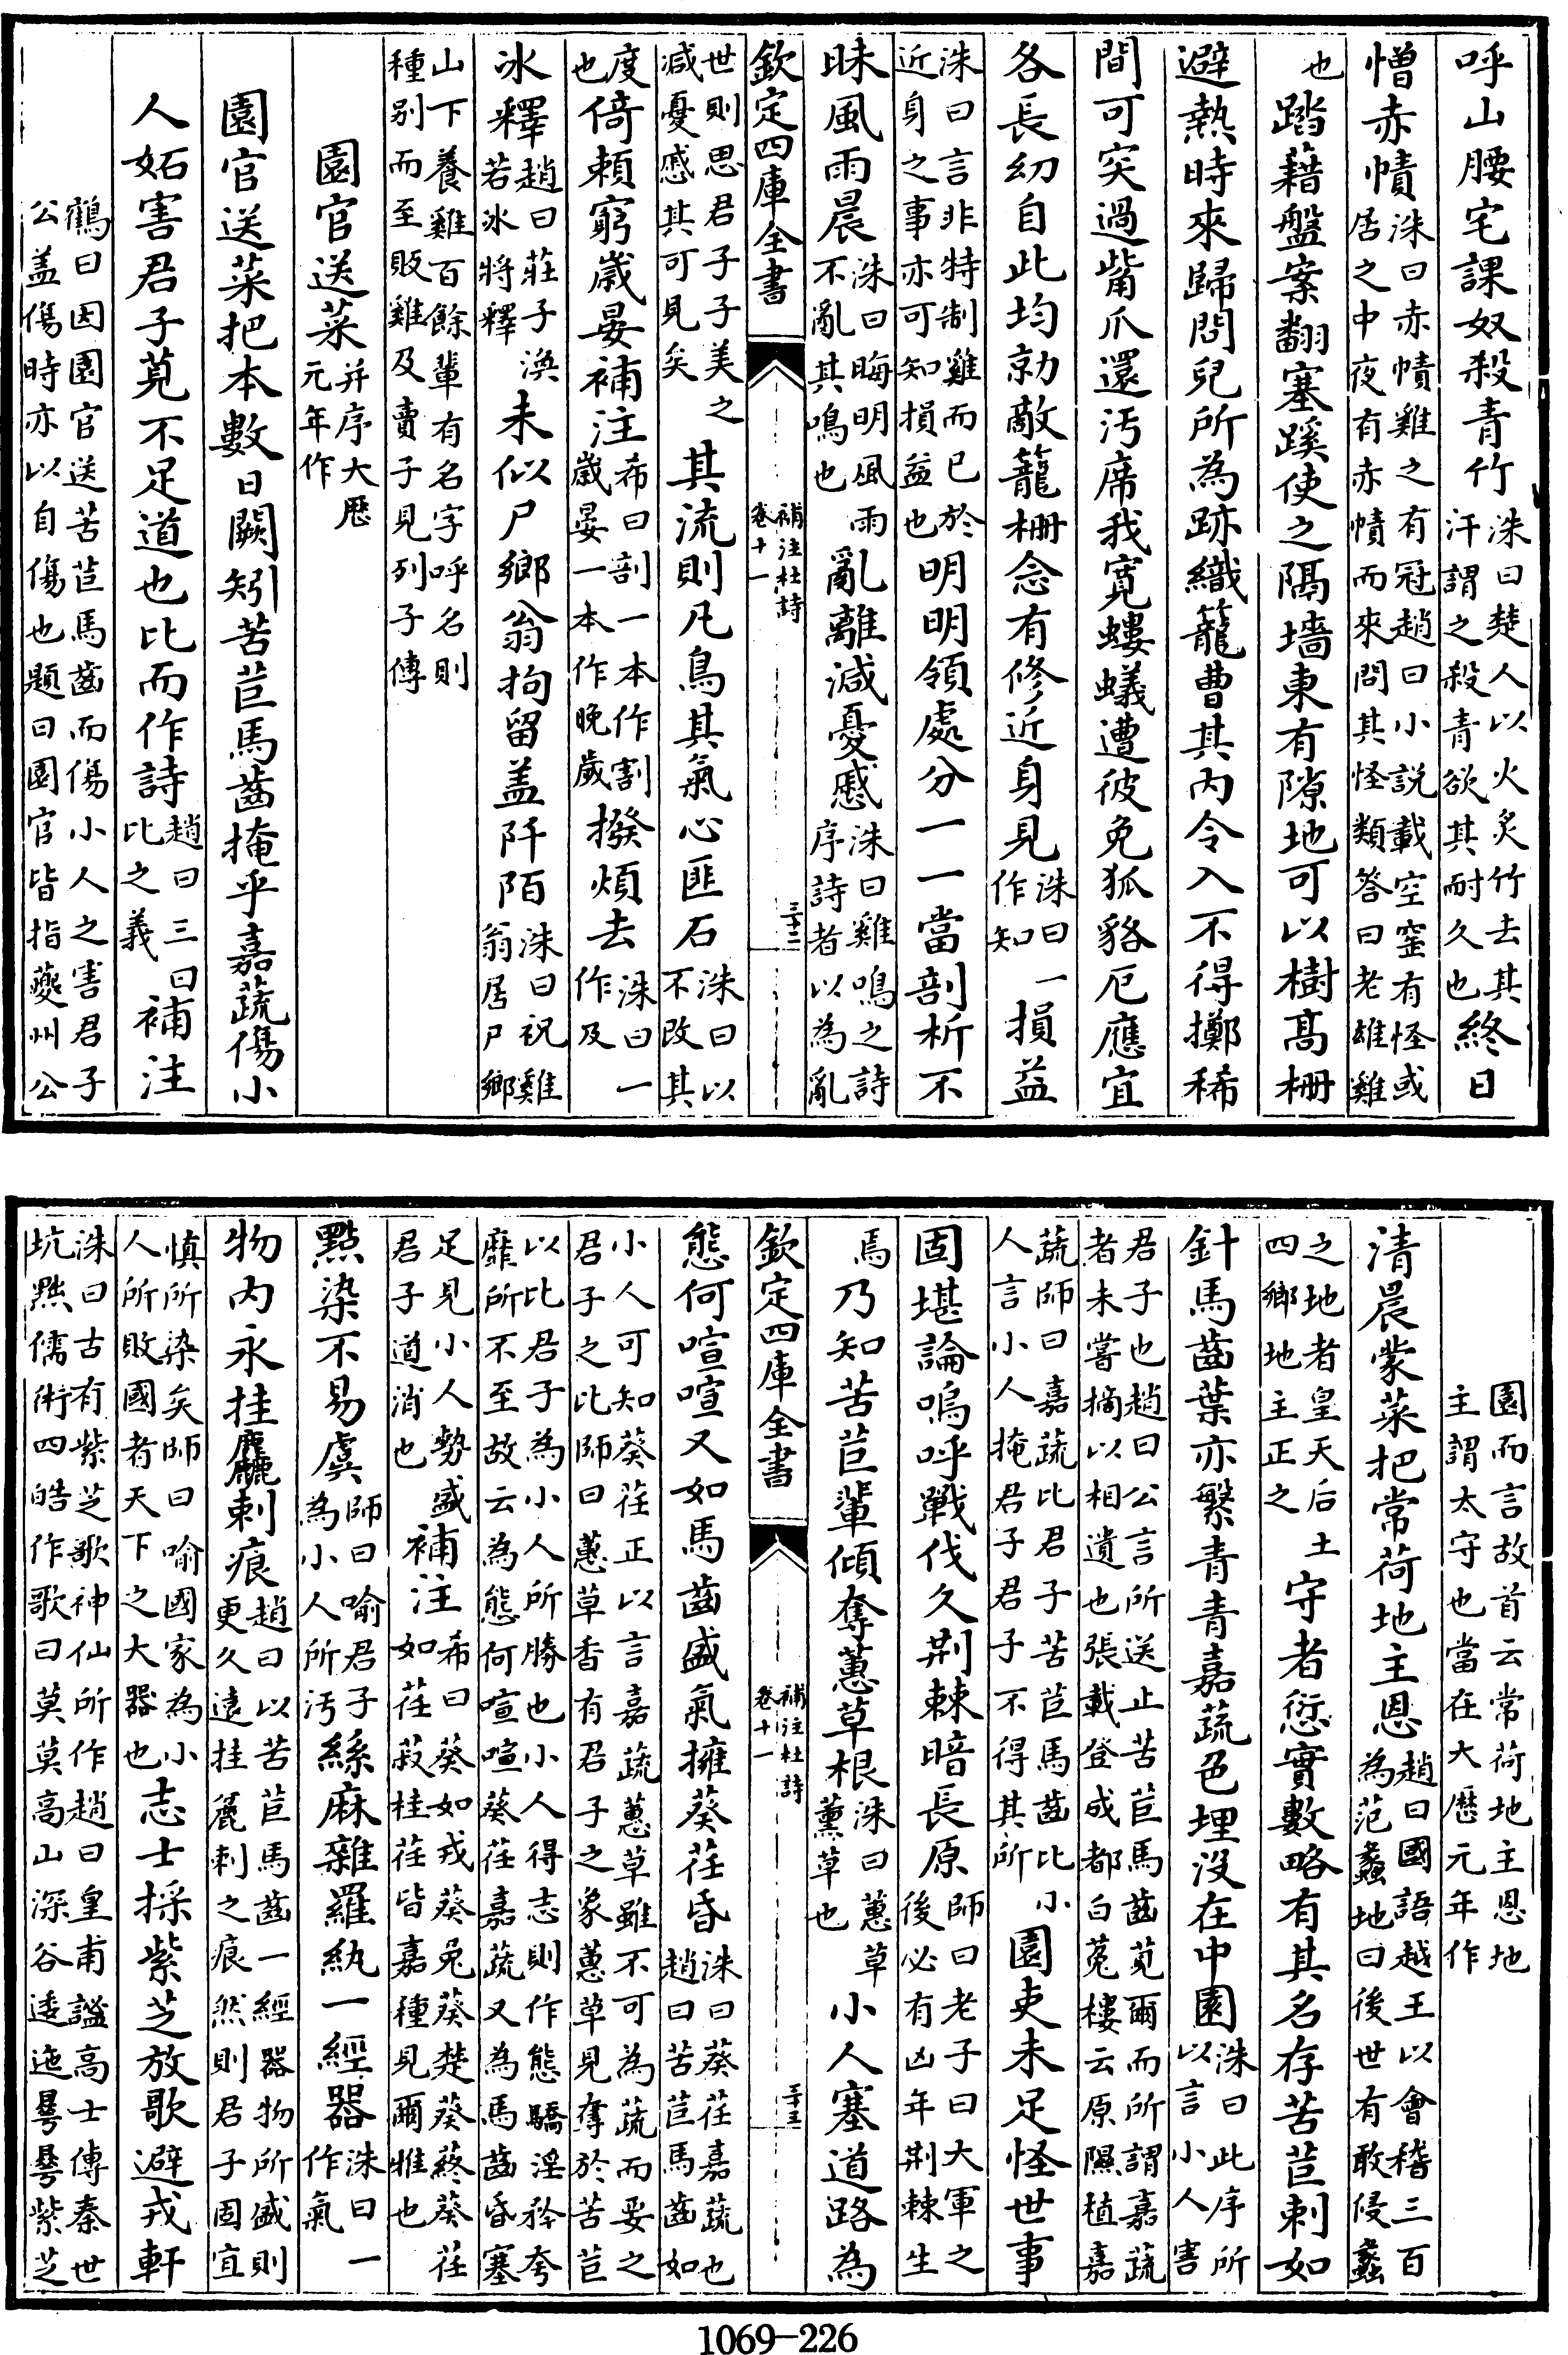 呼山腰宅課奴殺青竹洙曰楚人以火炙竹去其汗謂之殺青欲其耐久也終日
憎赤幘洙曰赤幘雞之有冠趙曰小説載空室有怪或居之中夜有赤幘而來問其怪類答曰老雄雞
也踏藉盤案翻塞蹊使之隔墻東有隙地可以樹髙柵
避熱時來歸問兒所為跡織籠曹其内令入不得擲稀
間可突過觜爪還汚席我寛螻蟻遭彼免狐貉厄應宜
各長幼自此均勍敵籠柵念有修近身見洙曰一作知損益
洙曰言非特制雞而已於近身之事亦可知損益也明明領處分一一當剖析不
昧風雨晨洙曰晦明風雨不亂其鳴也亂離減憂慼洙曰雞鳴之詩序詩者以為亂
欽定四庫全書 補注杜詩 卷十一 三十二
世則思君子子美之减憂慼其可見矣其流則凡鳥其氣心匪石洙曰以不改其
度也倚賴窮歲晏補注希曰剖一本作割歲晏一本作晚歲撥煩去洙曰一作及
冰釋趙曰莊子渙若冰將釋未似尸鄉翁拘留盖阡陌洙曰祝雞翁居尸鄉
山下養雞百餘輩有名字呼名則種别而至販雞及賣子見列子傳
園官送菜并序大厯元年作
園官送菜把本數日闕矧苦苣馬齒掩乎嘉蔬傷小
人妬害君子莧不足道也比而作詩趙曰三曰比之義補注
鶴曰因園官送苦苣馬齒而傷小人之害君子公盖傷時亦以自傷也題曰園官皆指夔州公
園而言故首云常荷地主恩地主謂太守也當在大厯元年作
清晨蒙菜把常荷地主恩趙曰國語越王以會稽三百為范蠡地曰後世有敢侵蠡
之地者皇天后土四鄉地主正之守者愆實數略有其名存苦苣刺如
針馬齒葉亦繁青青嘉蔬色埋沒在中園洙曰此序所以言小人害
君子也趙曰公言所送止苦苣馬齒莧爾而所謂嘉蔬者未嘗摘以相遺也張載登成都白菟樓云原隰植嘉
蔬師曰嘉蔬比君子苦苣馬齒比小人言小人掩君子君子不得其所園吏未足怪世事
固堪論嗚呼戰伐久荆棘暗長原師曰老子曰大軍之後必有凶年荆棘生
焉乃知苦苣輩傾奪蕙草根洙曰蕙草薰草也小人塞道路為
欽定四庫全書 補注杜詩 卷十一 三十三
態何喧喧又如馬齒盛氣擁葵荏昏洙曰葵荏嘉蔬也趙曰苦苣馬齒如
小人可知葵荏正以言嘉蔬蕙草雖不可為蔬而妥之君子之比師曰蕙草香有君子之象蕙草見奪於苦苣
以比君子為小人所勝也小人得志則作態驕淫矜夸靡所不至故云為態何喧喧葵荏嘉蔬又為馬齒昏塞
足見小人勢盛君子道消也補注希曰葵如戎葵兎葵楚葵蔠葵荏如荏菽桂荏皆嘉種見爾雅也
點染不易虞師曰喻君子為小人所汚絲麻雜羅紈一經器洙曰一作氣
物内永挂麤刺痕趙曰以苦苣馬齒一經器物所盛則更久遠挂麄刺之痕然則君子固宜
慎所染矣師曰喻國家為小人所敗國者天下之大器也志士採紫芝放歌避戎軒
洙曰古有紫芝歌神仙所作趙曰皇甫謐髙士傳秦世坑黜儒術四皓作歌曰莫莫高山深谷逶迤㬥㬥紫芝
1069-226